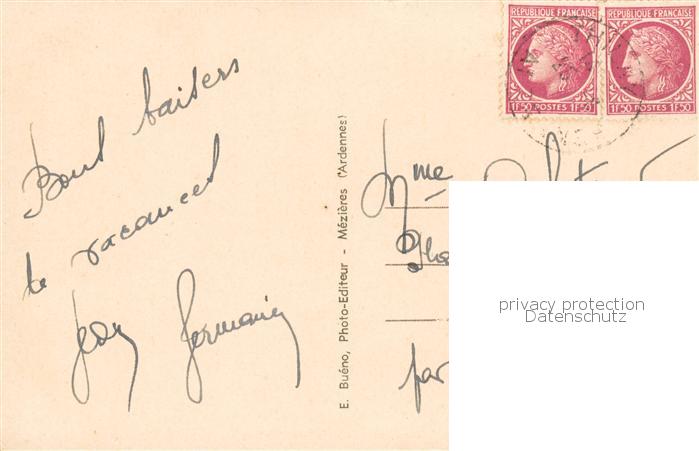 Bons baisers
de vacances
Jean Germain
E. Buéno, Photo-Editeur - Mézières (Ardennes)
REPUBLIQUE FRANÇAISE
1F50 POSTES 1F50
REPUBLIQUE FRANÇAISE
1F50 POSTES 1F50
Mme
par
privacy protection
Datenschutz